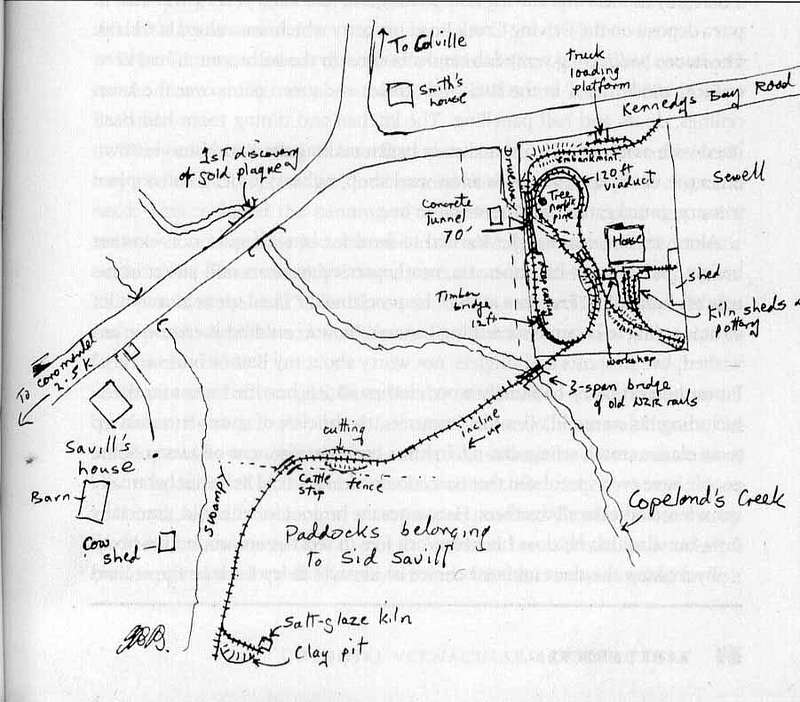 To Colville
Smith's
house
truck
loading
platform
Kennedys Bay Road
1st discovery
of gold plaque
Driveway
embankment
120 ft
viaduct
Sewell
Concrete
Tunnel
70'
Tree
pine
House
shed
Timber
bridge
Kiln sheds &
pottery
workshop
3-span bridge
of old NZR rails
To Coromandel
2.5 K
incline
up
cutting
Cattle
stop
fence
Savill's
house
Barn
Swamp
Cow
shed
Paddocks belonging
To Sid Savill
Copeland's Creek
Salt-glaze kiln
Clay pit